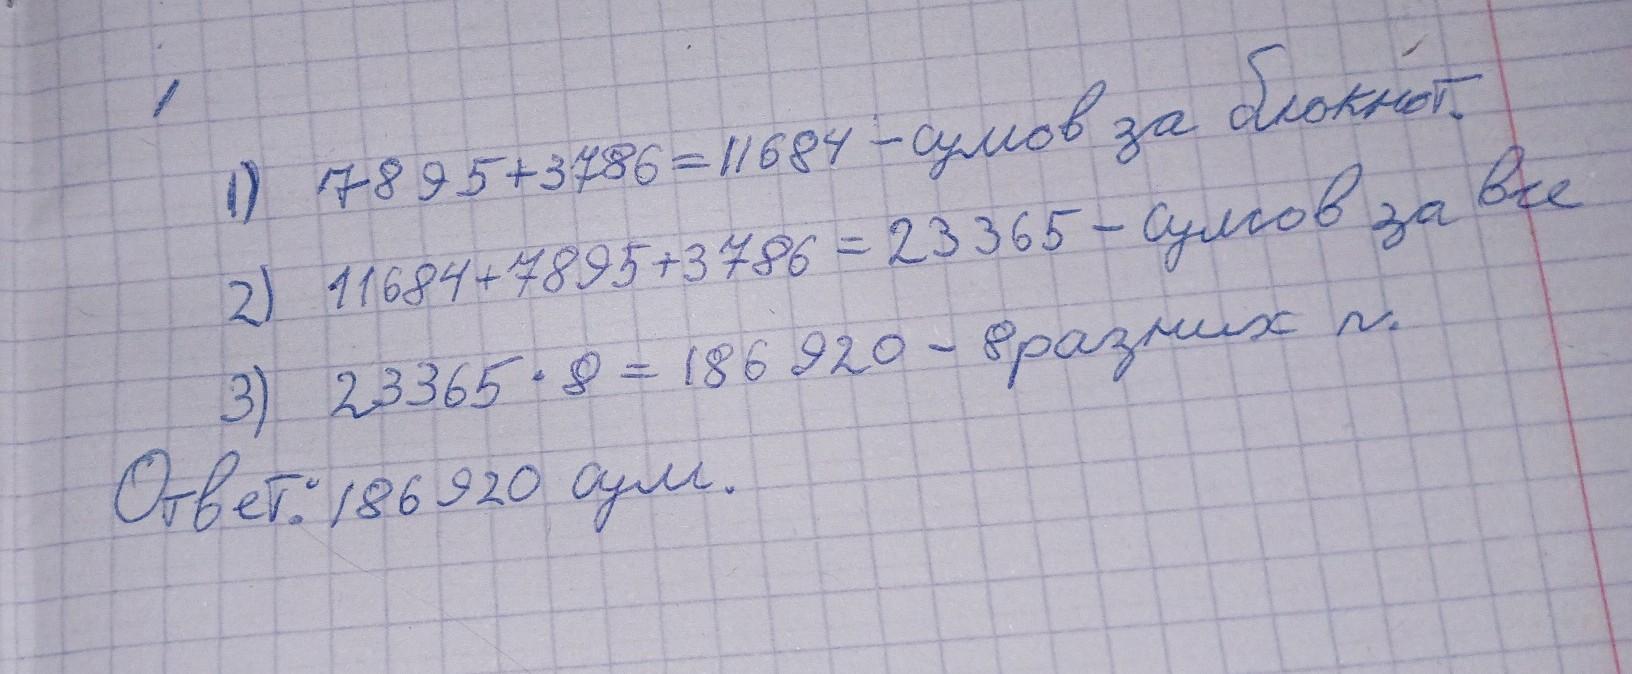 1
1) 7895+3786=11684-сумов за блокнот.
2) 11684+7895+3786=23365-сумов за все
3) 23365·8=186920-8разних п.
Ответ: 186920 сум.